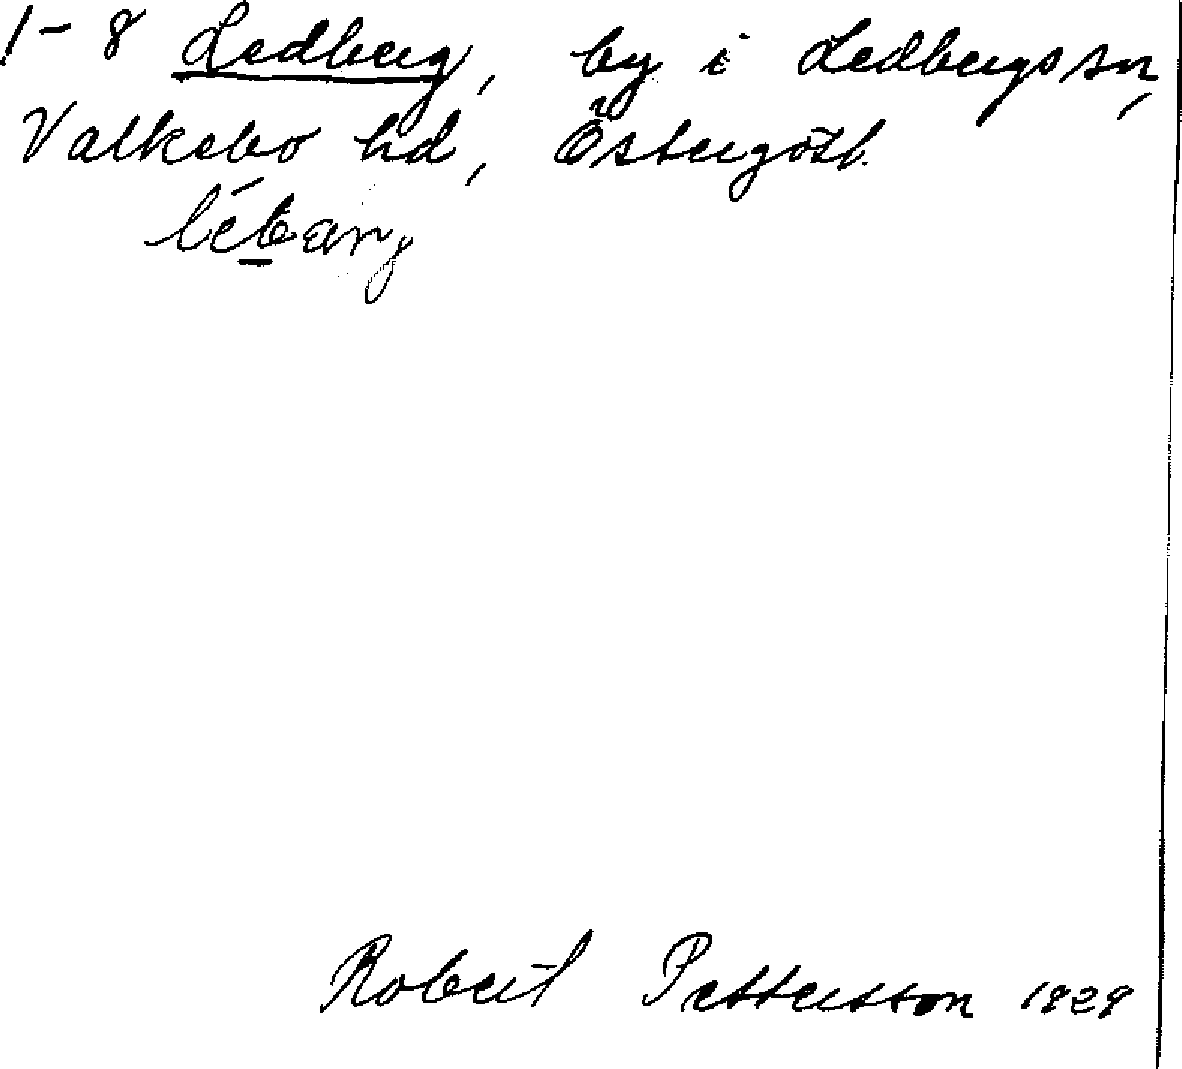 1-8 Ledberg, by i Ledbergs sn,
Valkebo hd, Östergötl.
Robert Pettersson 1929